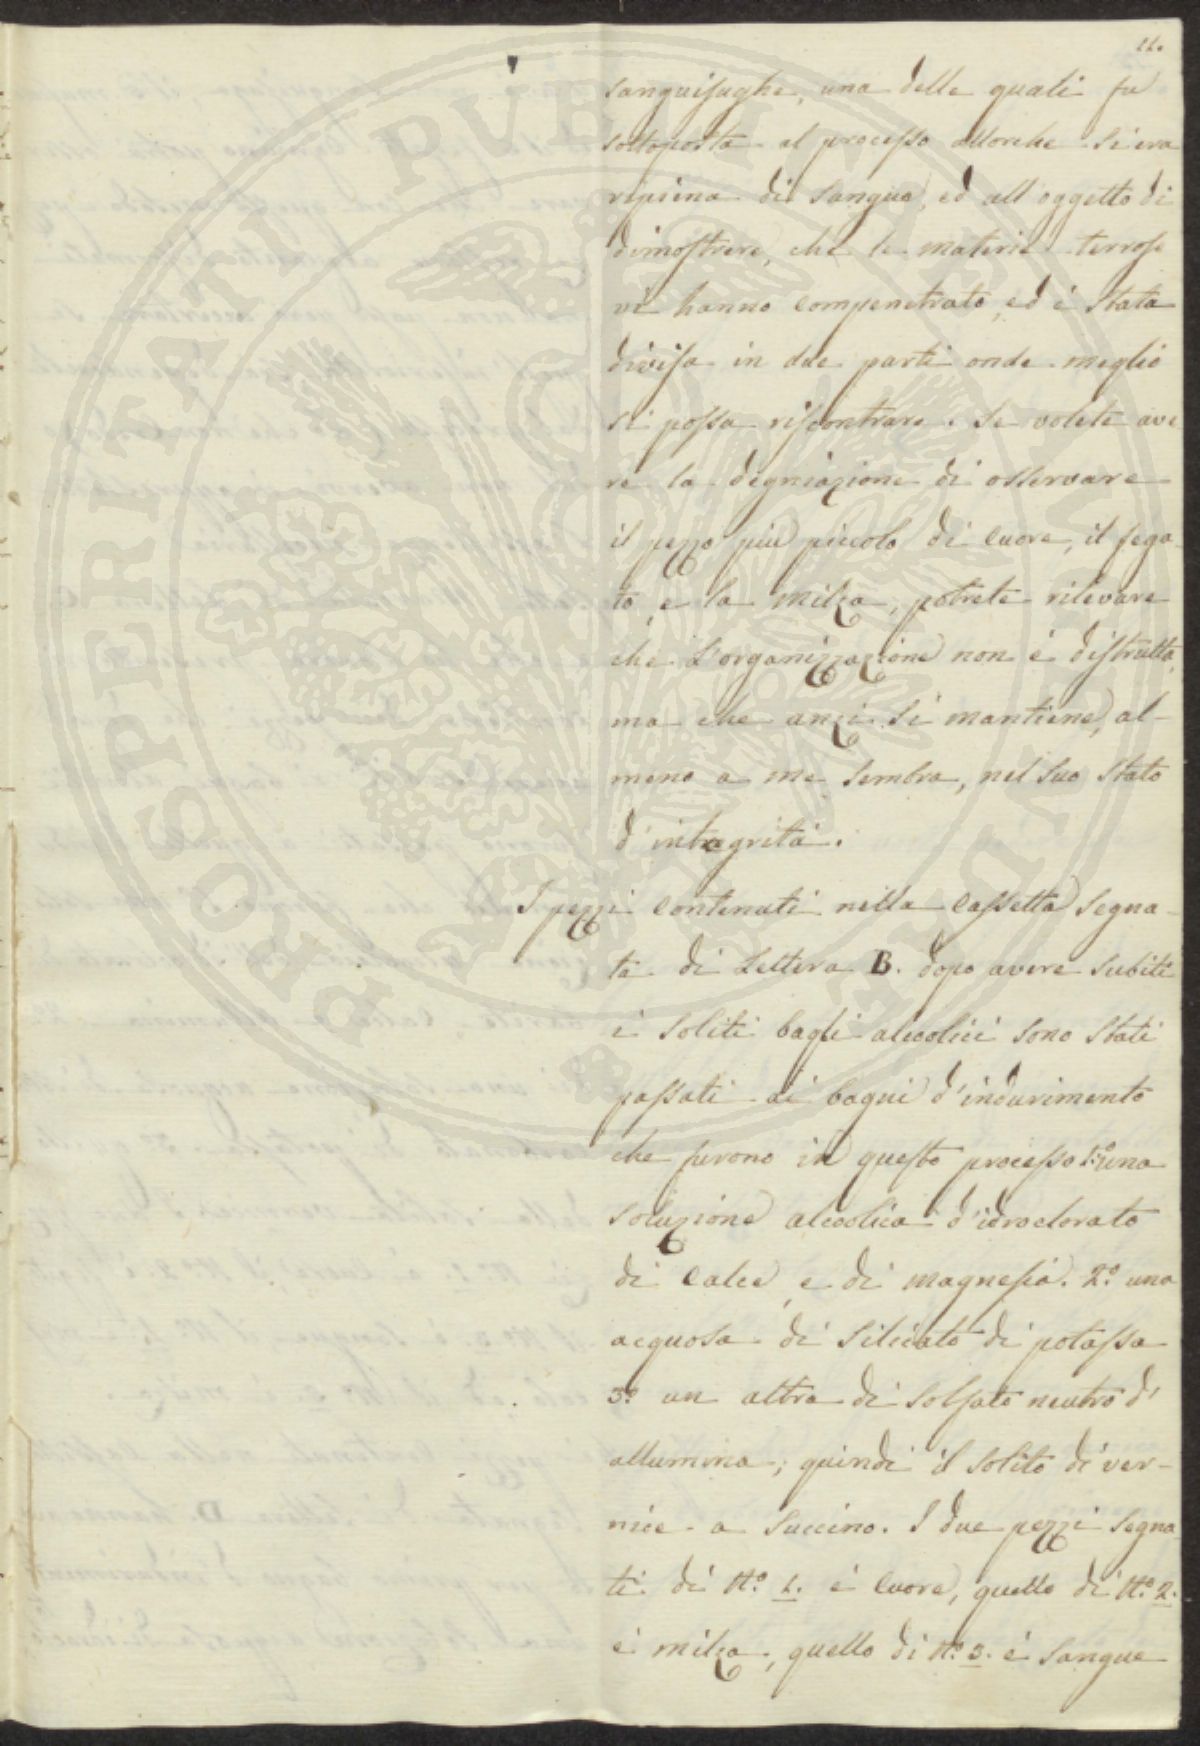 11.
sanguisughe, una delle quali fu
sottoposta al processo allorche si era
ripiena di sangue, ed all'oggetto di
dimostrare, che le materie terrose
vi hanno compenetrato, ed è stata
divisa in due parti onde meglio
si possa riscontrare. Se volete ave
re la degniazione di osservare
il pezzo più piccolo di cuore, il fega-
to, e la milza, potrete rilevare
che l'organizzazione non è distrutta,
ma che anzi si mantiene, al-
meno a me sembra, nel suo stato
d'integrità.
I pezzi contenuti nella cassetta segna-
ta di Lettera B. dopo avere subiti
i soliti bagni alcolici sono stati
passati ai bagni d'indurimento
che furono in questo processo 1.° una
soluzione alcoolica d'idroclorato
di calce, e di magnesia. 2.° una
acquosa di silicato di potassa
3.° un altra di solfato neutro d'
allumina; quindi il solito di ver-
nice a succino. I due pezzi segna
ti di N.° 1. è cuore, quello di N.° 2.
è milza, quello di N.° 3. è sangue
PROSPERITATI PUBLICAE AUGENDAE